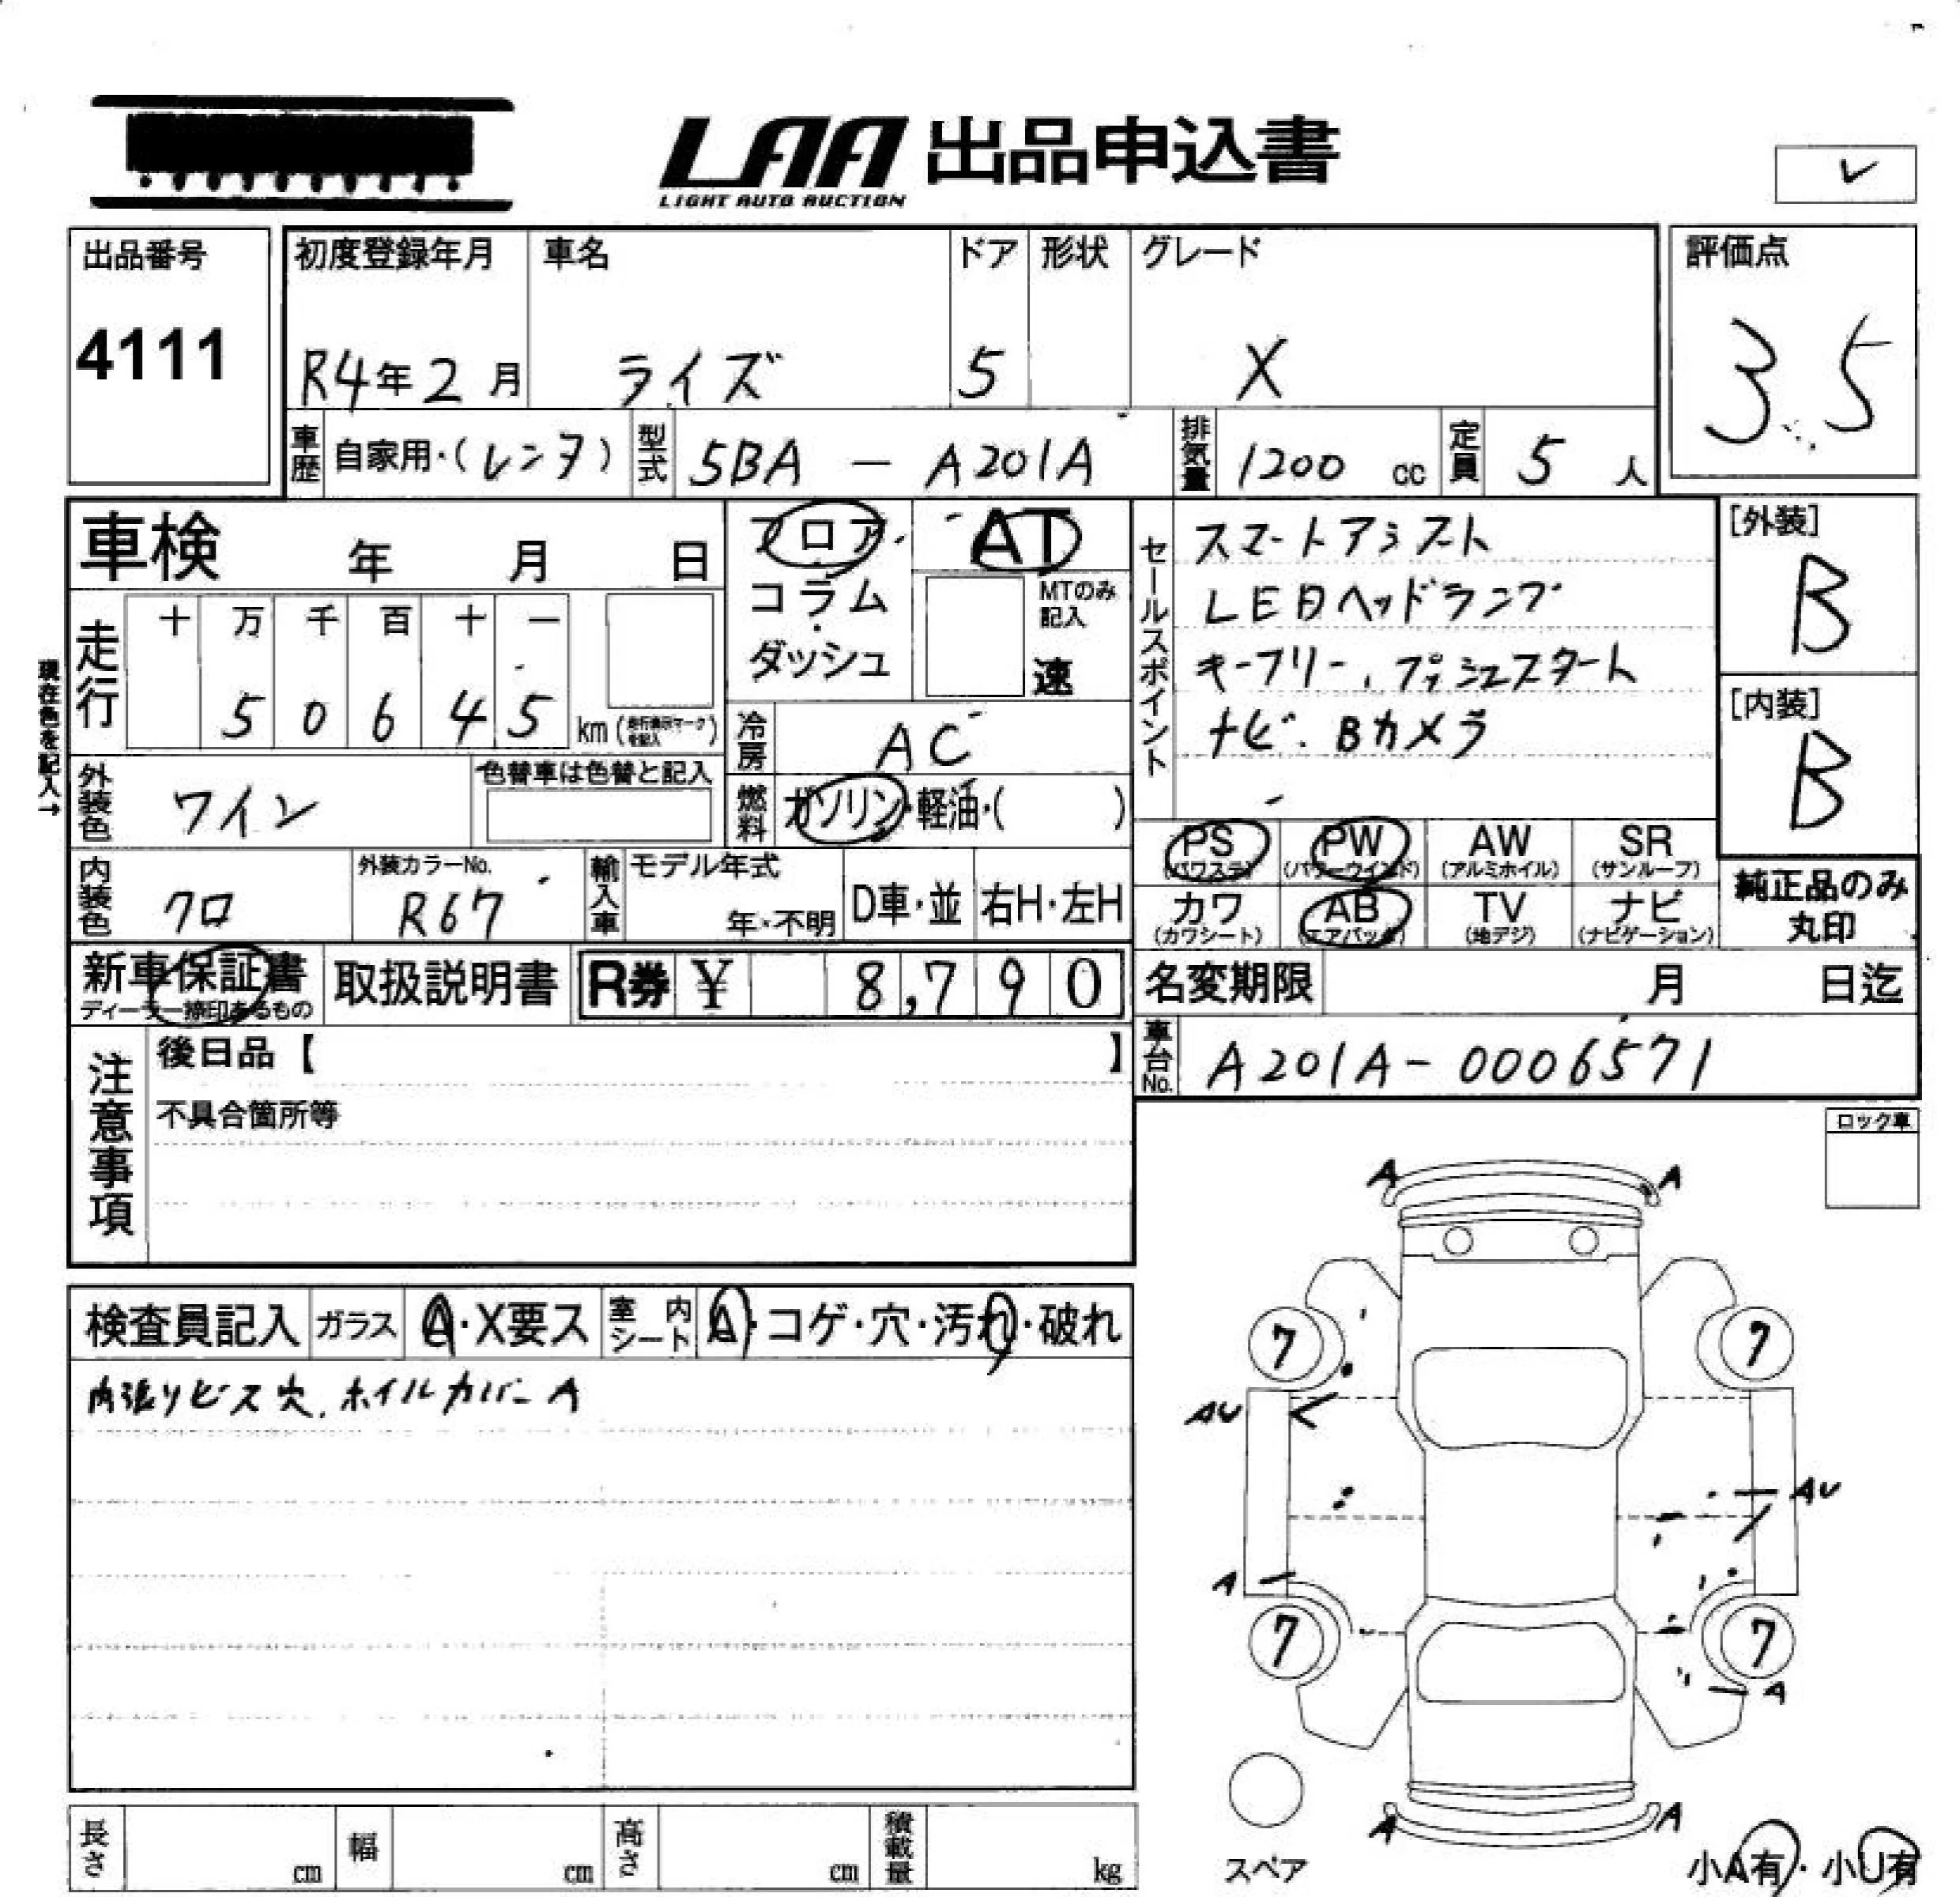 LAA 出品申込書
LIGHT AUTO AUCTION
出品番号
4111
初度登録年月 車名 ドア 形状 グレード
R4年2月 ライズ 5 X
評価点
3.5
車歴 自家用・(レンタ) 型式 5BA - A201A 排気量 1200 cc 定員 5 人
車検 年 月 日
フロア・
コラム・
ダッシュ
AT
MTのみ記入
速
セールスポイント
スマートアシスト
LEDヘッドランプ
キーフリー、プッシュスタート
ナビ・Bカメラ
[外装]
B
[内装]
B
現在色を記入→
走行 十 万 千 百 十 一
5 0 6 4 5 km (走行表示マークを記入)
冷房 AC
外装色 ワイン 色替車は色替と記入
燃料 ガソリン・軽油・( )
PS (パワステ) PW (パワーウインド) AW (アルミホイル) SR (サンルーフ)
カワ (カワシート) AB (エアバック) TV (地デジ) ナビ (ナビゲーション)
純正品のみ丸印
内装色 クロ 外装カラーNo. R67 輸入車 モデル年式 年・不明 D車・並 右H・左H
新車保証書 ディーラー捺印あるもの 取扱説明書 R券 ¥ 8,790
名変期限 月 日迄
車台No. A201A-0006571
注意事項
後日品【 】
不具合箇所等
ロック車
検査員記入 ガラス A・X要ス 室内シート A・コゲ・穴・汚れ・破れ
内張りビス穴、ホイルカバーA
A A
7 7
AU
AU
A
7 7
A
A A
スペア
小A有・小U有
長さ cm 幅 cm 高さ cm 積載量 kg